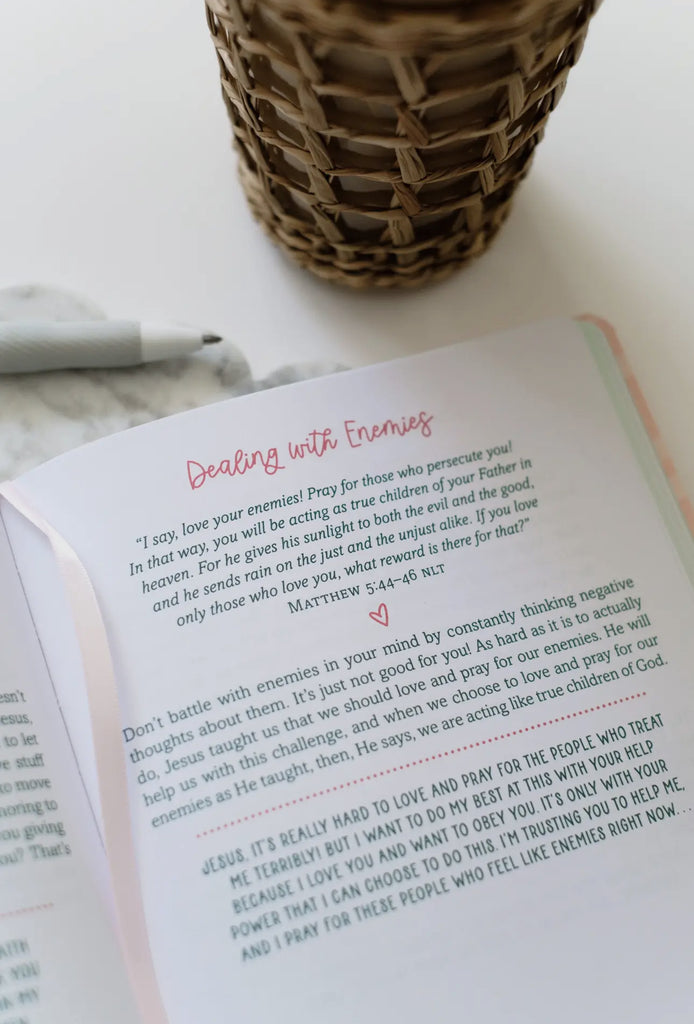 esn't
esus,
to let
e stuff
to move
noring to
ou giving
ou? That's
AITH
YOU
MY
Dealing with Enemies
“I say, love your enemies! Pray for those who persecute you!
In that way, you will be acting as true children of your Father in
heaven. For he gives his sunlight to both the evil and the good,
and he sends rain on the just and the unjust alike. If you love
only those who love you, what reward is there for that?”
MATTHEW 5:44–46 NLT
Don't battle with enemies in your mind by constantly thinking negative
thoughts about them. It's just not good for you! As hard as it is to actually
do, Jesus taught us that we should love and pray for our enemies. He will
help us with this challenge, and when we choose to love and pray for our
enemies as He taught, then, He says, we are acting like true children of God.
JESUS, IT'S REALLY HARD TO LOVE AND PRAY FOR THE PEOPLE WHO TREAT
ME TERRIBLY! BUT I WANT TO DO MY BEST AT THIS WITH YOUR HELP
BECAUSE I LOVE YOU AND WANT TO OBEY YOU. IT'S ONLY WITH YOUR
POWER THAT I CAN CHOOSE TO DO THIS. I'M TRUSTING YOU TO HELP ME,
AND I PRAY FOR THESE PEOPLE WHO FEEL LIKE ENEMIES RIGHT NOW. . .